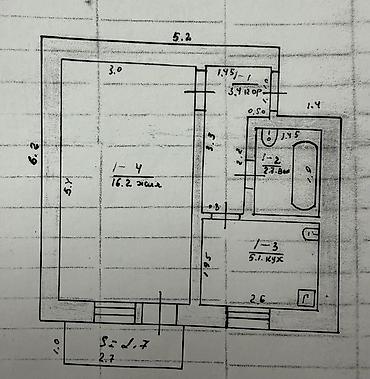 5.2
3.0
1.45
1-1
3.4 кор
1.0
0.50
1.4
6.2
5.4
3.3
2.2
1.45
1-2
1.0
1-4
16.2 жил
0.8
1-3
5.1. кух
1.95
2.6
Г
1.0
S=2.7
2.7